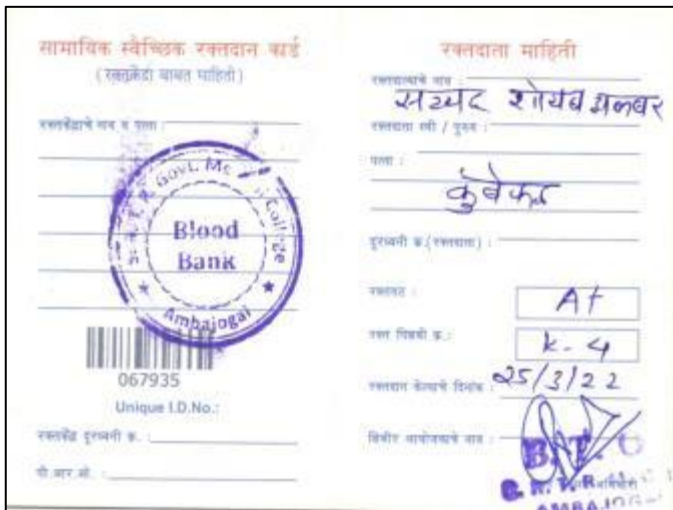 सामायिक स्वैच्छिक रक्तदान कार्ड
( रक्तकेंद्रा बाबत माहिती )
रक्तकेंद्राचे नाव व पत्ता :
Govt. College
Blood
Bank
Ambajogai
067935
Unique I.D.No.:
रक्तकेंद्र दुरध्वनी क. :
पी.आर.ओ. :
रक्तदाता माहिती
रक्तदात्याचे नाव :
सय्यद शोयब अकबर
रक्तदाता स्त्री / पुरुष :
पत्ता :
दुरध्वनी क.(रक्तदाता) :
रक्तगट :
A+
रक्त पिशवी क्र.:
k-4
रक्तदान केल्याचे दिनांक :
25/3/22
शिबीर आयोजकाचे नाव :